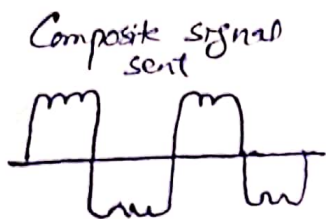 Composite signal
sent